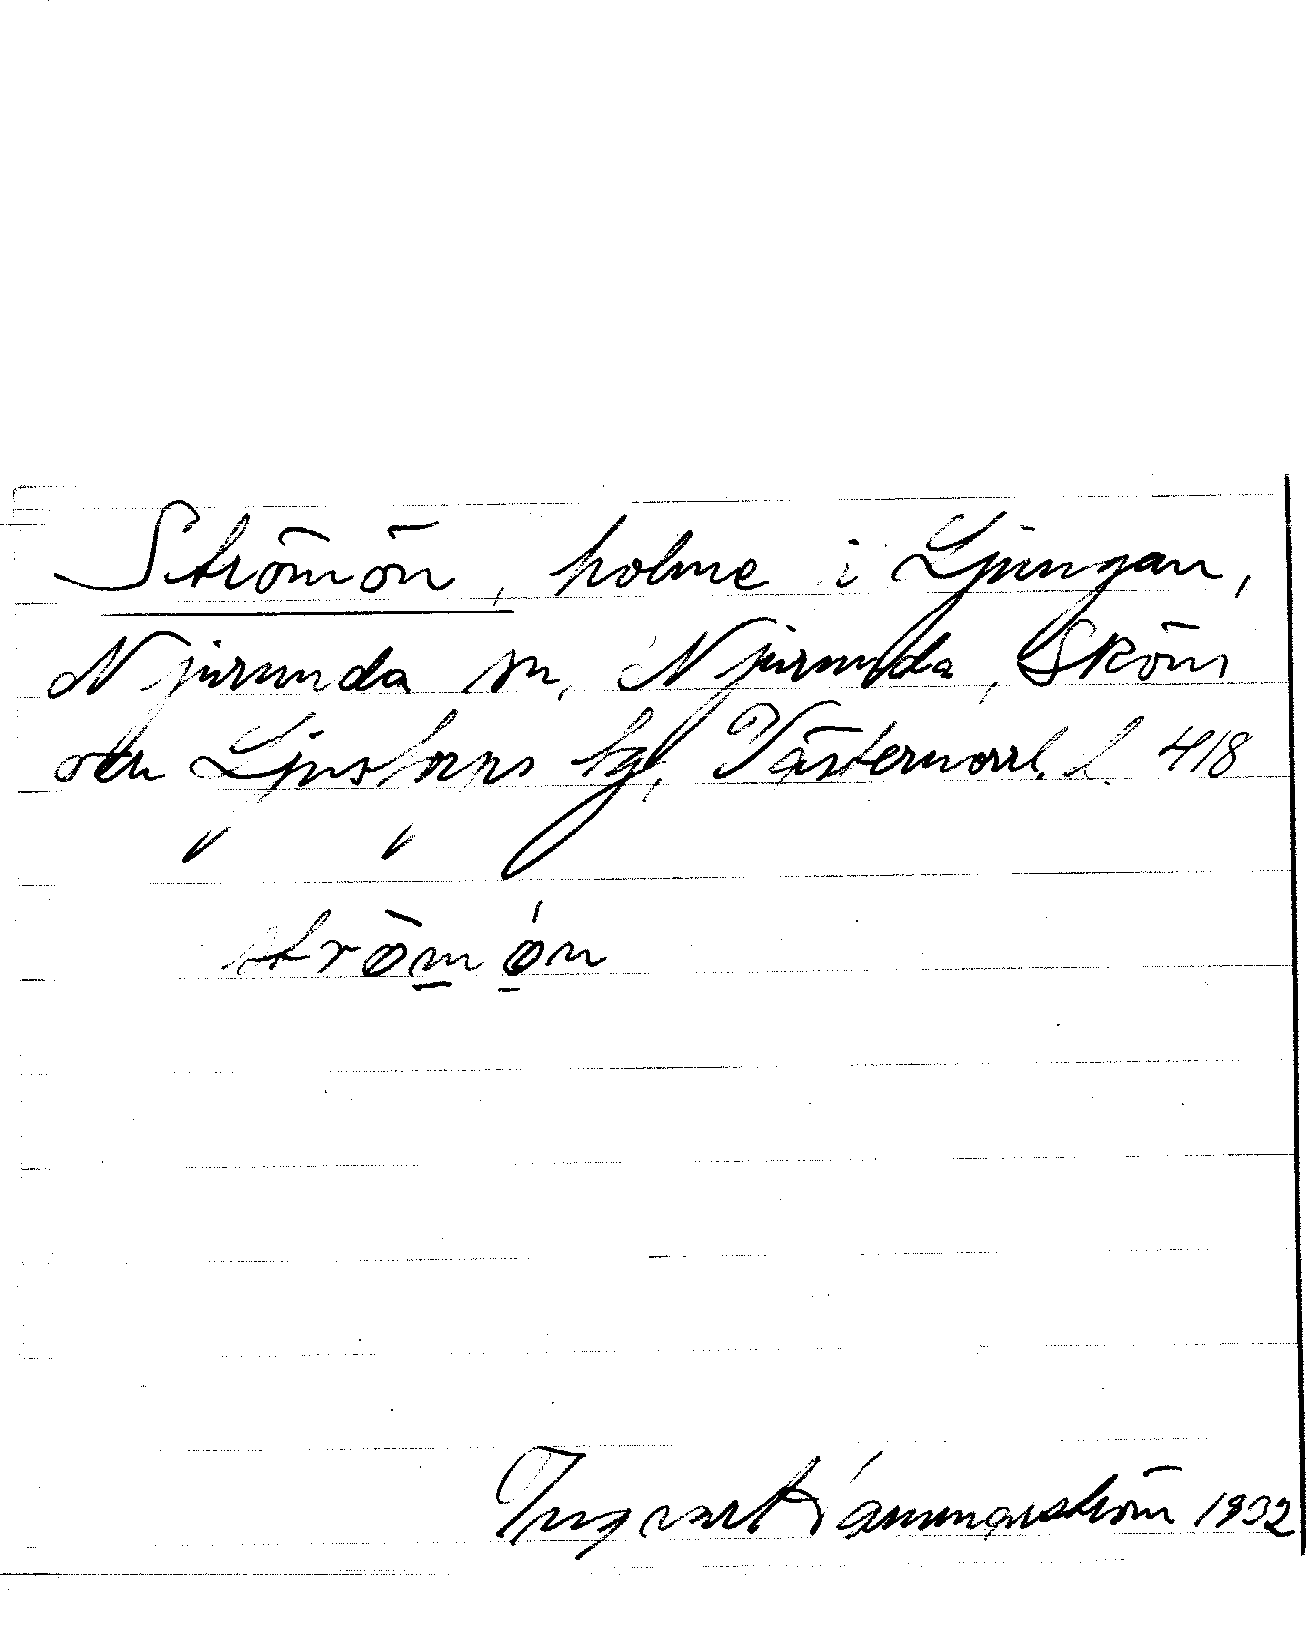 Strömön, holme i Ljungan,
Njurunda sn, Njurunda, Sköns
och Ljustorps tgl, Västernorrl. l. 418
" "
strömön
Ingvart 1932